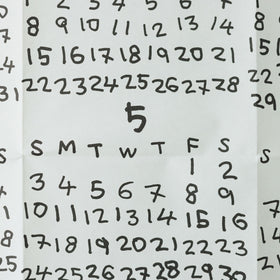 1 2 3 4 5 6 7
8 9 10 11 12 13 14
15 16 17 18 19 20 21
22 23 24 25 26 27 28
5
S M T W T F S
1 2
3 4 5 6 7 8 9
10 11 12 13 14 15 16
17 18 19 20 21 22 23
24 25 26 27 28 29 30